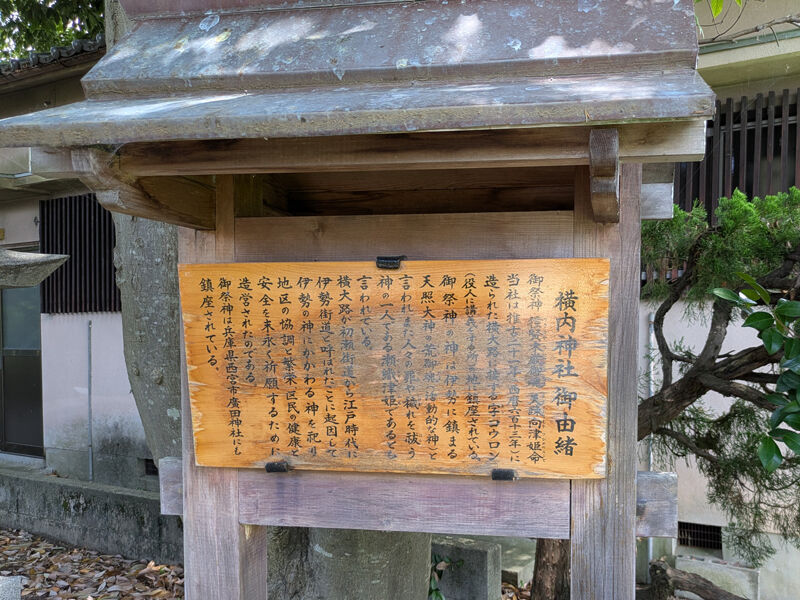 横内神社御由緒
御祭神 撞賢木厳御魂天疎向津姫命
当社は推古二十一年(西暦六百十三年)に
造られた横大路に接する字コウロン
(役人に講義する所)の地に鎮座されている。
御祭神の神は伊勢に鎮まる
天照大神の荒御魂(活動的な神)と
言われまた人々の罪や穢れを祓う
神の一人である瀬織津姫であるとも
言われている。
横大路が初瀬街道から江戸時代に
伊勢街道と呼ばれたことに起因して
伊勢の神にかかわる神を祀り
地区の協調と繁栄区民の健康と
安全を末永く祈願するために
造営されたのである。
御祭神は兵庫県西宮市廣田神社にも
鎮座されている。